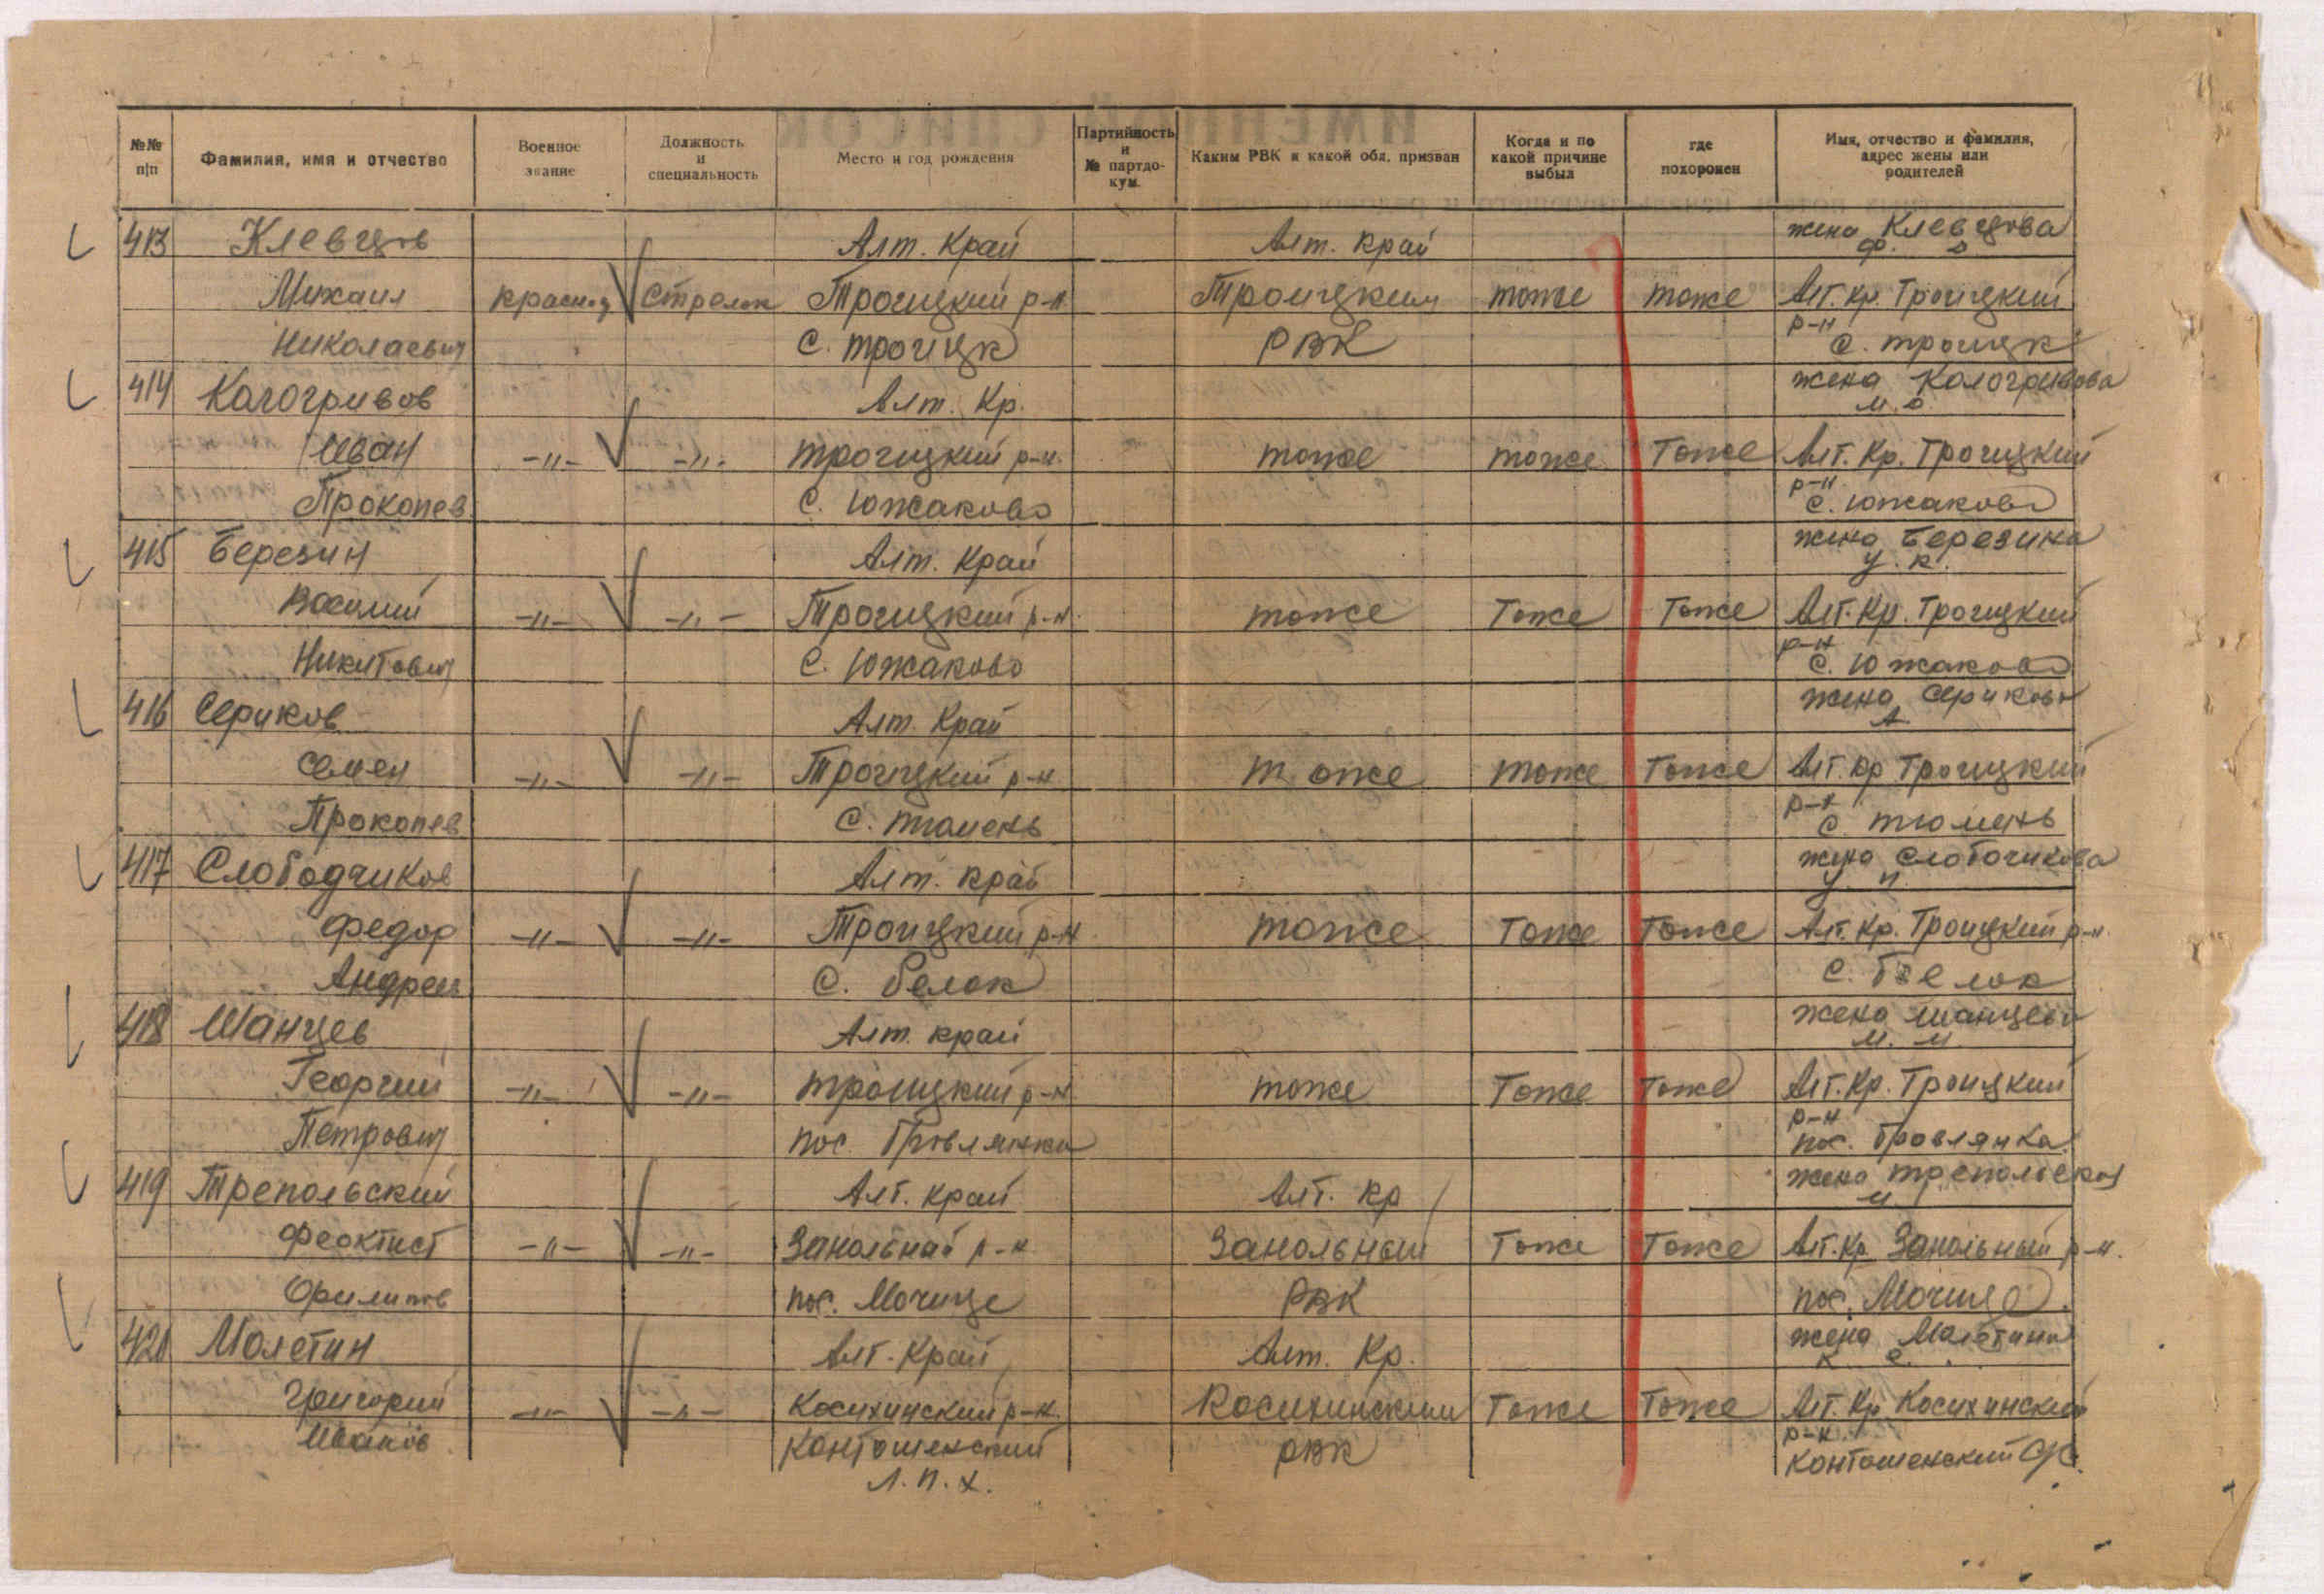 №№ п|п Фамилия, имя и отчество Военное звание Должность и специальность Место и год рождения Партийность и № партдокум. Каким РВК и какой обл. призван Когда и по какой причине выбыл где похоронен Имя, отчество и фамилия, адрес жены или родителей
413 Клевцов Алт. Край Алт. край жена Клевцова
Ф.
Михаил Красноа Стрелок Троицкий р-н Троицким тоже тоже Алт. Кр. Троицкий
р-н
Николаевич С. Троицк РВК С. Троицк
414 Кологривов Алт. Кр. жена Кологривова
М.
Иван -"- -"- Троицкий р-н. тоже тоже Тоже Алт. Кр. Троицкий
р-н
Прокопев С. Южаково С. Южаково
415 Березин Алт. Край жена Березина
У. К.
Василий -"- -"- Троицкий р-н. тоже Тоже Тоже Алт. Кр. Троицкий
р-н
Никитович С. Южаково С. Южаково
416 Сериков Алт. Край жена Серикова
А
Семен -"- -"- Троицкий р-н тоже тоже Тоже Алт. Кр Троицкий
р-н
Прокопев С. Тюмень С. Тюмень
417 Слободчиков Алт. край жена Слобочикова
У. И.
Федор -"- -"- Троицкий р-н тоже Тоже Тоже Алт. Кр. Троицкий р-н.
Андреев С. Белок С. Белок
418 Шанцев Алт. край жена Шанцева
М. М.
Георгий -"- -"- Троицкий р-н тоже Тоже Тоже Алт. Кр. Троицкий
р-н
Петрович пос. пос.
419 Трепольский Алт. край Алт. Кр жена Трепольская
М
Феоктист -"- -"- р-н Тоже Тоже Алт. Кр р-н.
Филипов пос. Мочище РВК пос. Мочище
420 Молетин Алт. Край Алт. Кр. жена Молетина
К. Е.
Григорий -"- -"- Косихинский р-н. Косихинским Тоже Тоже Алт. Кр Косихинский
р-н.
Иванов Контошенский РВК Контошенский
Л. П. Х.